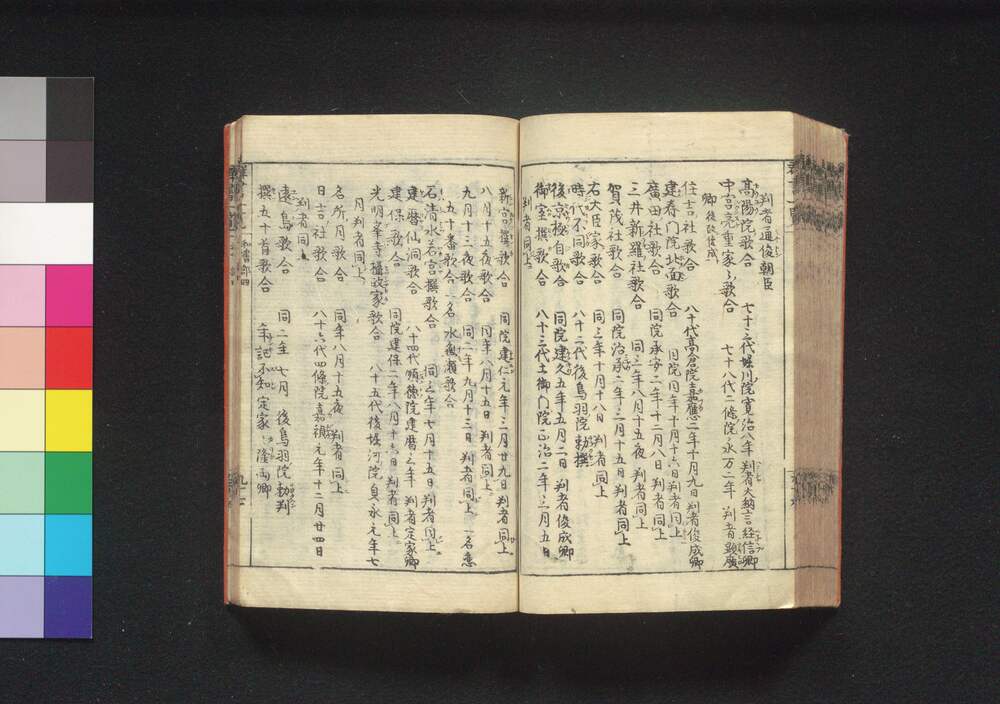 判者通俊朝臣
高陽院歌合 七十三代堀川院寛治八年 判者大納言経信卿
中宮亮重家ノ歌合 七十八代二條院永万二年 判者顕廣
卿後改俊成
住吉社歌合 八十代高倉院嘉應二年十月九日判者俊成卿
建春門院北面歌合 同院同年十月十六日判者同上
廣田社歌合 同院承安二年十二月八日判者同上
三井新羅社歌合 同三年八月十五夜判者同上
賀茂社歌合 同院治承二年三月十五日判者同上
右大臣家歌合 同三年十月十八日 判者同上
時代不同歌合 八十二代後鳥羽院勅撰
後京極自歌合 同院建久五年五月二日 判者俊成卿
御室撰歌合 八十三代土御門院正治二年三月五日
判者同上
新宮撰歌合 同院建仁元年三月廿九日判者同上
八月十五夜歌合 同年八月十五日 判者同上
九月十三夜歌合 同二年九月十三日判者同上 一名恋
五十番歌合 一名 水無瀬歌合
石清水若宮撰歌合 同三年七月十五日判者同上
建暦仙洞歌合 八十四代順徳院建暦三年 判者定家卿
建保歌合 同院建保二年八月十六日 判者同上
光明峯寺攝政家歌合 八十五代後堀河院貞永元年七
月判者同上
名所月歌合 同年八月十五夜 判者同上
日吉社歌合 八十六代四條院嘉禎元年十二月廿四日
判者同上
遠島歌合 同二年七月 後鳥羽院勅判
撰五十首歌合 年記不知 定家 隆両卿